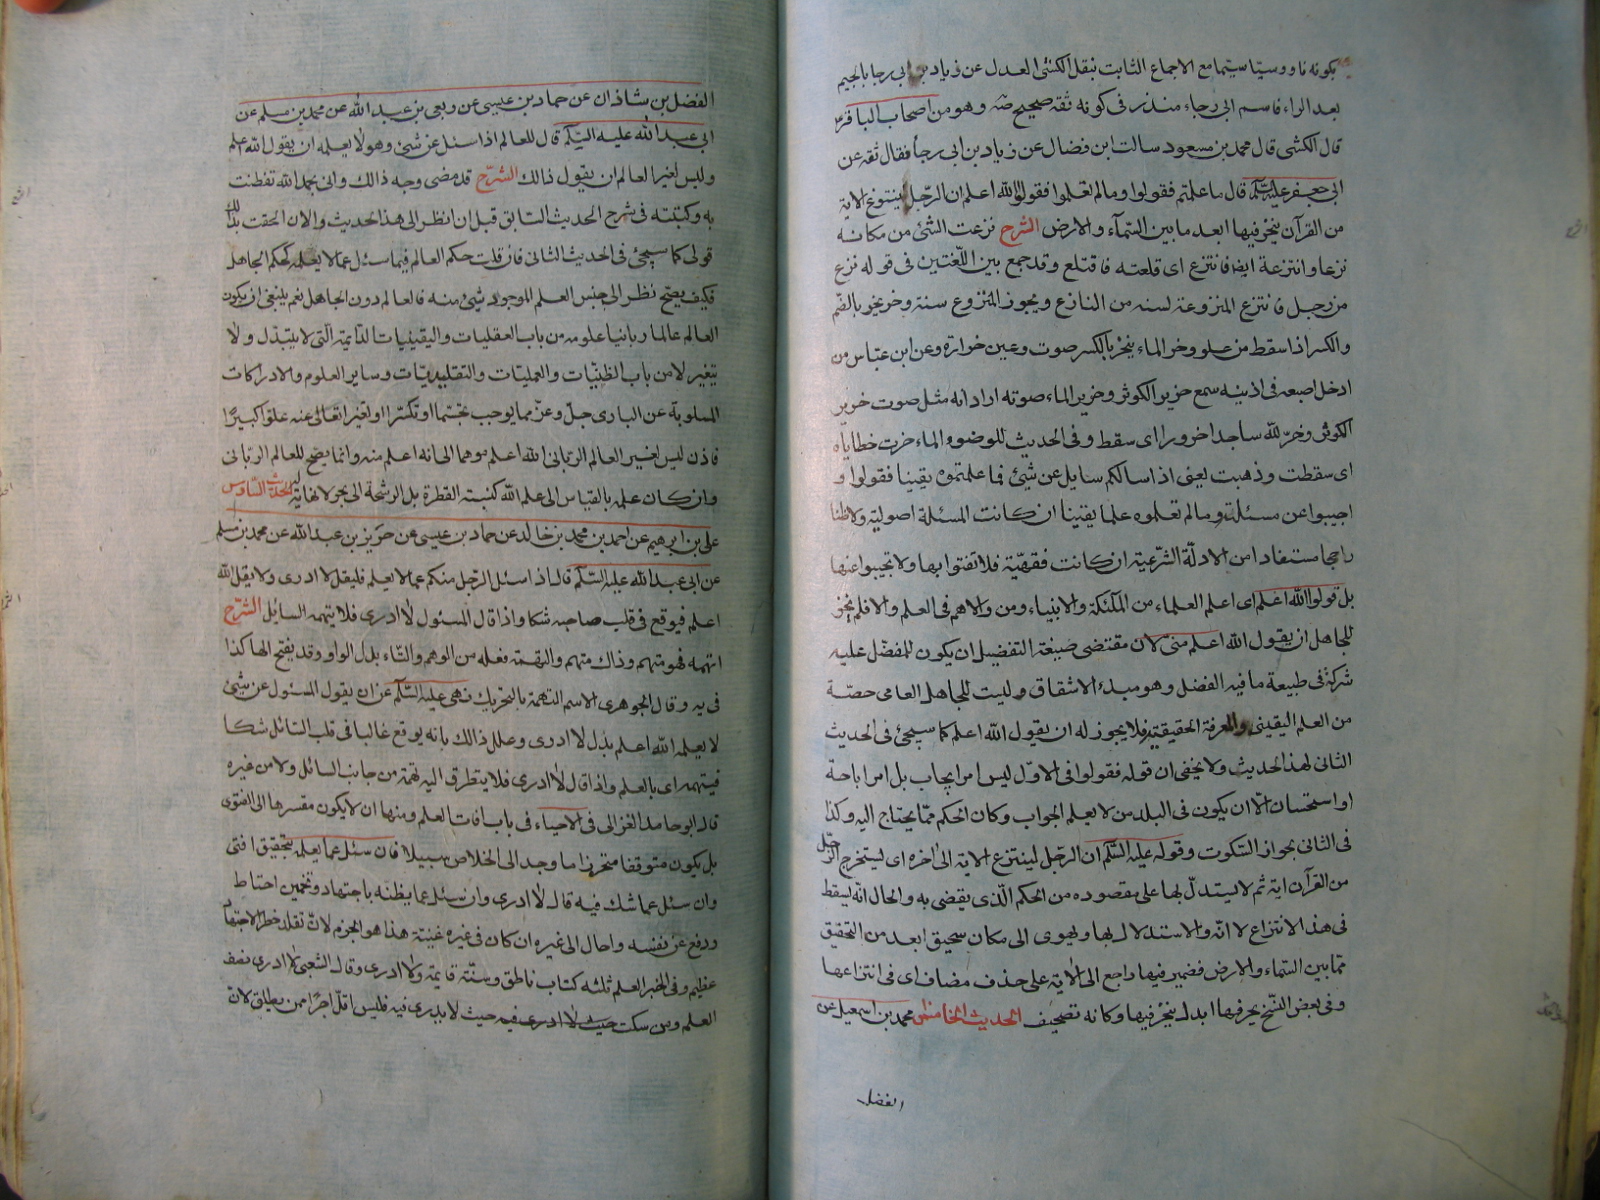 بكونه ناووسيا سيما مع الاجماع الثابت بنقل الكشى العدل عن زياد بن ابى رجا بالجيم
بعد الراء فاسم ابى رجاء منذر فى كونه ثقه صحيح صه وهو من اصحاب الباقر
قال الكشى قال محمد بن مسعود سالت ابن فضال عن زياد بن ابى رجأ فقال ثقه عن
ابى جعفر عليه السّلم قال ما علمتم فقولوا وما لم تعلموا فقولوا الله اعلم ان الرجل لينتزع الاية
من القرآن يخرّ فيها ابعد ما بين السّمآء والارض الشرح نزعت الشئ من مكانه
نزعا وانتزعة ايضا فانتزع اى قلعته فاقتلع وقد جمع بين اللّغتين فى قوله نزع
من رجل فانتزع المنزوعة لسنه من النازع ويجوز المنزوع سنة وخر يخر بالضّم
والكسر اذا سقط من علو وخر الماء يخرّ بالكسر صوت وعين خرارة وعن ابن عبّاس من
ادخل اصبعه فى اذنيه سمع خرير الكوثر وخرير الماء صوته اراد انه مثل صوت خرير
الكوثر وخرّ لله ساجدا خرورا اى سقط وفى الحديث للوضوء والماء خرت خطاياه
اى سقطت وذهبت يعنى اذا سالكم سايل عن شيئ فما علمتموه يقينا فقولوا و
اجيبوا عن مسئلة وما لم تعلموه علما يقينا ان كانت المسئلة اصولية ولا ظنا
راجحا مستفادا من الادلّة الشّرعية ان كانت فقهيّة فلا تفتوا بها ولا تجيبوا عنها
بل قولوا الله اعلم اى اعلم العلماء من الملئكة والانبياء ومن والاهم فى العلم والا فلم يجز
للجاهل ان يقول الله اعلم منى لان مقتضى صيغة التفضيل ان يكون للمفضّل عليه
شركة فى طبيعة ما فيه الفضل وهو مبدء الاشقاق وليت للجاهل العامى حصّة
من العلم اليقينى والمعرفة الحقيقية فلا يجوز له ان يقول الله اعلم كما سيجئ فى الحديث
الثانى لهذا الحديث ولا يخفى ان قوله فقولوا فى الاوّل ليس امر ايجاب بل امر اباحة
او استحسان الّا ان يكون فى البلد من لا يعلم الجواب وكان الحكم ممّا يحتاج اليه وكذا
فى الثانى بجواز السّكوت وقوله عليه السّلم ان الرجل لينتزع الاية الى اخره اى ليستخرج الرّجل
من القرآن اية ثم لا يستدلّ بها على مقصوده من الحكم الّذى يقضى به والحال انّه ليسقط
فى هذا الانتزاع لانّه والاستدلال بها ويهوى الى مكان سحيق ابعد من التحقيق
ممّا بين السّماء والارض فضمير فيها راجع الى الاية على حذف مضاف اى فى انتزاعها
وفى بعض النّسخ يحرفيها ابدل يخرّ فيها وكانه تصحيف الحديث الخامس محمد بن اسمعيل عن
الفضل
الفضل بن شاذان عن حماد بن عيسى عن ربعى بن عبد الله عن محمد بن مسلم عن
ابى عبد الله عليه السّلم قال للعالم اذا سئل عن شئ وهو لا يعلمه ان يقول الله اعلم
وليس لغير العالم ان يقول ذالك الشرح قد مضى وجه ذالك وانى بحمد الله تفطنت
به وكتبته فى شرح الحديث السّابق قبل ان انظر الى هذا الحديث والان الحقت بذلك
قولى كما سيجئ فى الحديث الثانى فان قلت حكم العالم فيما سئل عما لا يعلمه كحكم الجاهل
فكيف يصحّ نظر الى جنس العلم الموجود شئ منه فالعالم دون الجاهل نعم ينبغى ان يكون
العالم عالما ربانيا علومه من باب العقليات واليقينيات الدّايمة الّتى لا يتبدّل ولا
يتغير لا من باب الظنيّات والعمليّات والتقليديّات وساير العلوم والادراكات
المسلوبة عن البارى جلّ وعزّ مما يوجب تجسّما او تكثرا او تغيرا تعالى عنه علوّا كبيرًا
فاذن ليس لغير العالم الرّبانى الله اعلم موهما الى انه اعلم منه وانما يصحّ للعالم الربانى
وان كان علمه بالقياس الى علم الله كنسبة القطرة بل الرشحة الى بحر لا نهاية له الحديث السّادس
على بن ابرهيم عن احمد بن محمد بن خالد عن حماد بن عيسى عن حريز بن عبد الله عن محمد بن مسلم
عن ابى عبد الله عليه السّلم قال اذا سئل الرّجل منكم عما لا يعلم فليقل لا ادرى ولا يقل الله
اعلم فيوقع فى قلب صاحبه شكا واذا قال المسئول لا ادرى فلا يتهمه السايل الشّرح
اتهمه فهو متهم وذاك متهم والتهمة فعله من الوهم والتّاء بدل الواو وقد يفتح الها كذا
فى يه وقال الجوهرى الاسم التهمة بالتحريك نهى عليه السّلم عن ان يقول المسئول عن شئ
لا يعلمه الله اعلم بدل لا ادرى وعلل ذالك بانه يوقع غالبا فى قلب السّائل شكا
فيتهمه اى بالعلم واذا قال لا ادرى فلا يتطرق اليه تهمة من جانب السائل ولا من غيره
قال ابو حامد الغزالى فى الاحياء فى باب افات العلم ومنها ان لا يكون مفسرها الى الفتوى
بل يكون متوقفا متحرزا ما وجد الى الخلاص سبيلا فان سئل عما يعلمه بتحقيق افتى
وان سئل عما شك فيه قال لا ادرى وان سئل عما يظنه باجتهاد وتخمين احتاط
ودفع عن نفسه واحال الى غيره ان كان فى غيره غنية هذا هو الجزم لانّ تقلد خطر الاجتهاد
عظيم وفى الخبر العلم ثلثه كتاب ناطق وسنّة قايمة ولا ادرى وقال الشعبى لا ادرى نصف
العلم ومن سكت حيث لا ادرى فيه حيث لا يدرى فيه فليس اقلّ اجرًا ممن يطلق لانّ